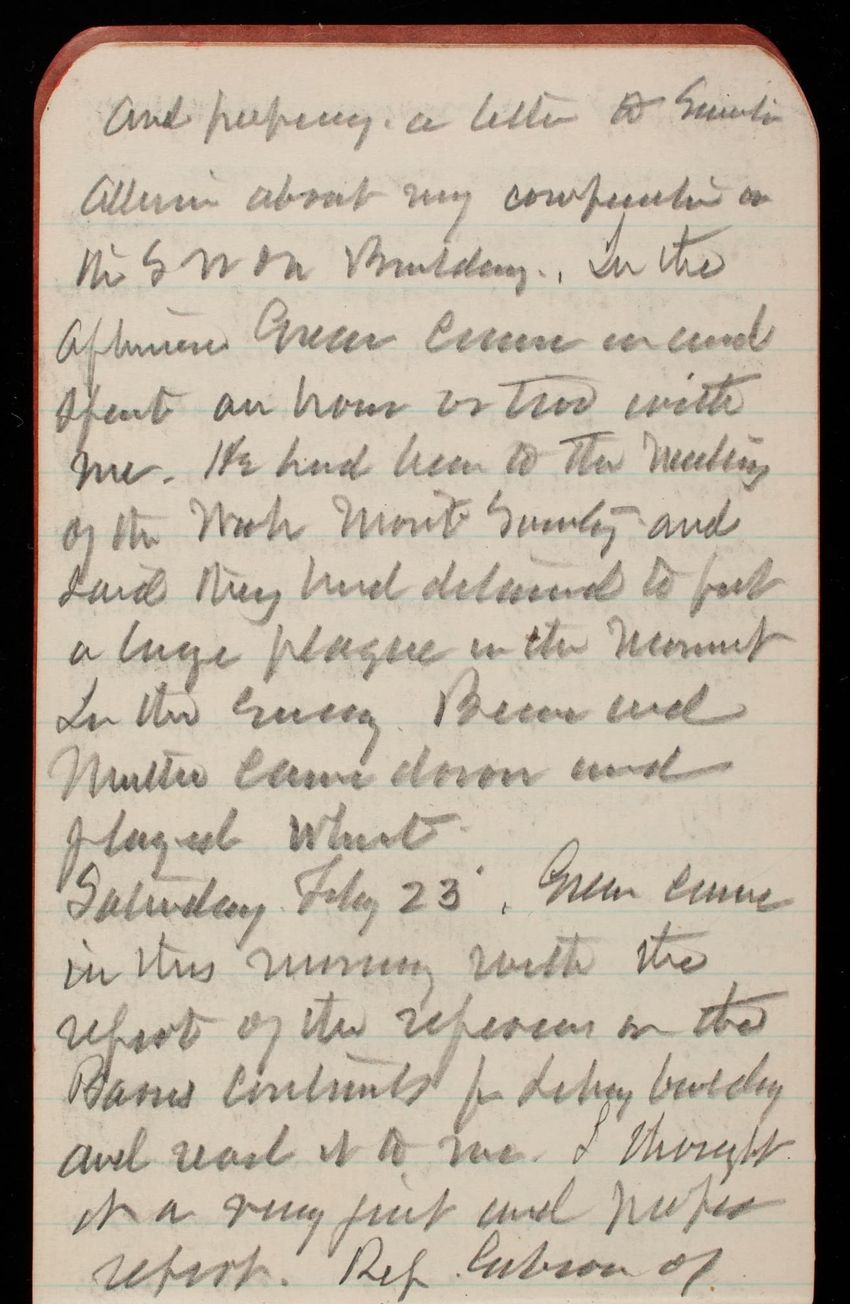 and preparing a letter to Senator
Allison about my compensation on
the S W & N Building. In the
afternoon Green came in and
spent an hour or two with
me. He had been to the Meeting
of the Wash Monut Society and
said they had determined to put
a large plaque in the Monmut
In the evening and
came down and
played Whist
Saturday Feby 23. Green came
in this morning with the
report of the referees on the
contracts for Library building
and read it to me. I thought
it a very just and proper
report. Rep Gibson of